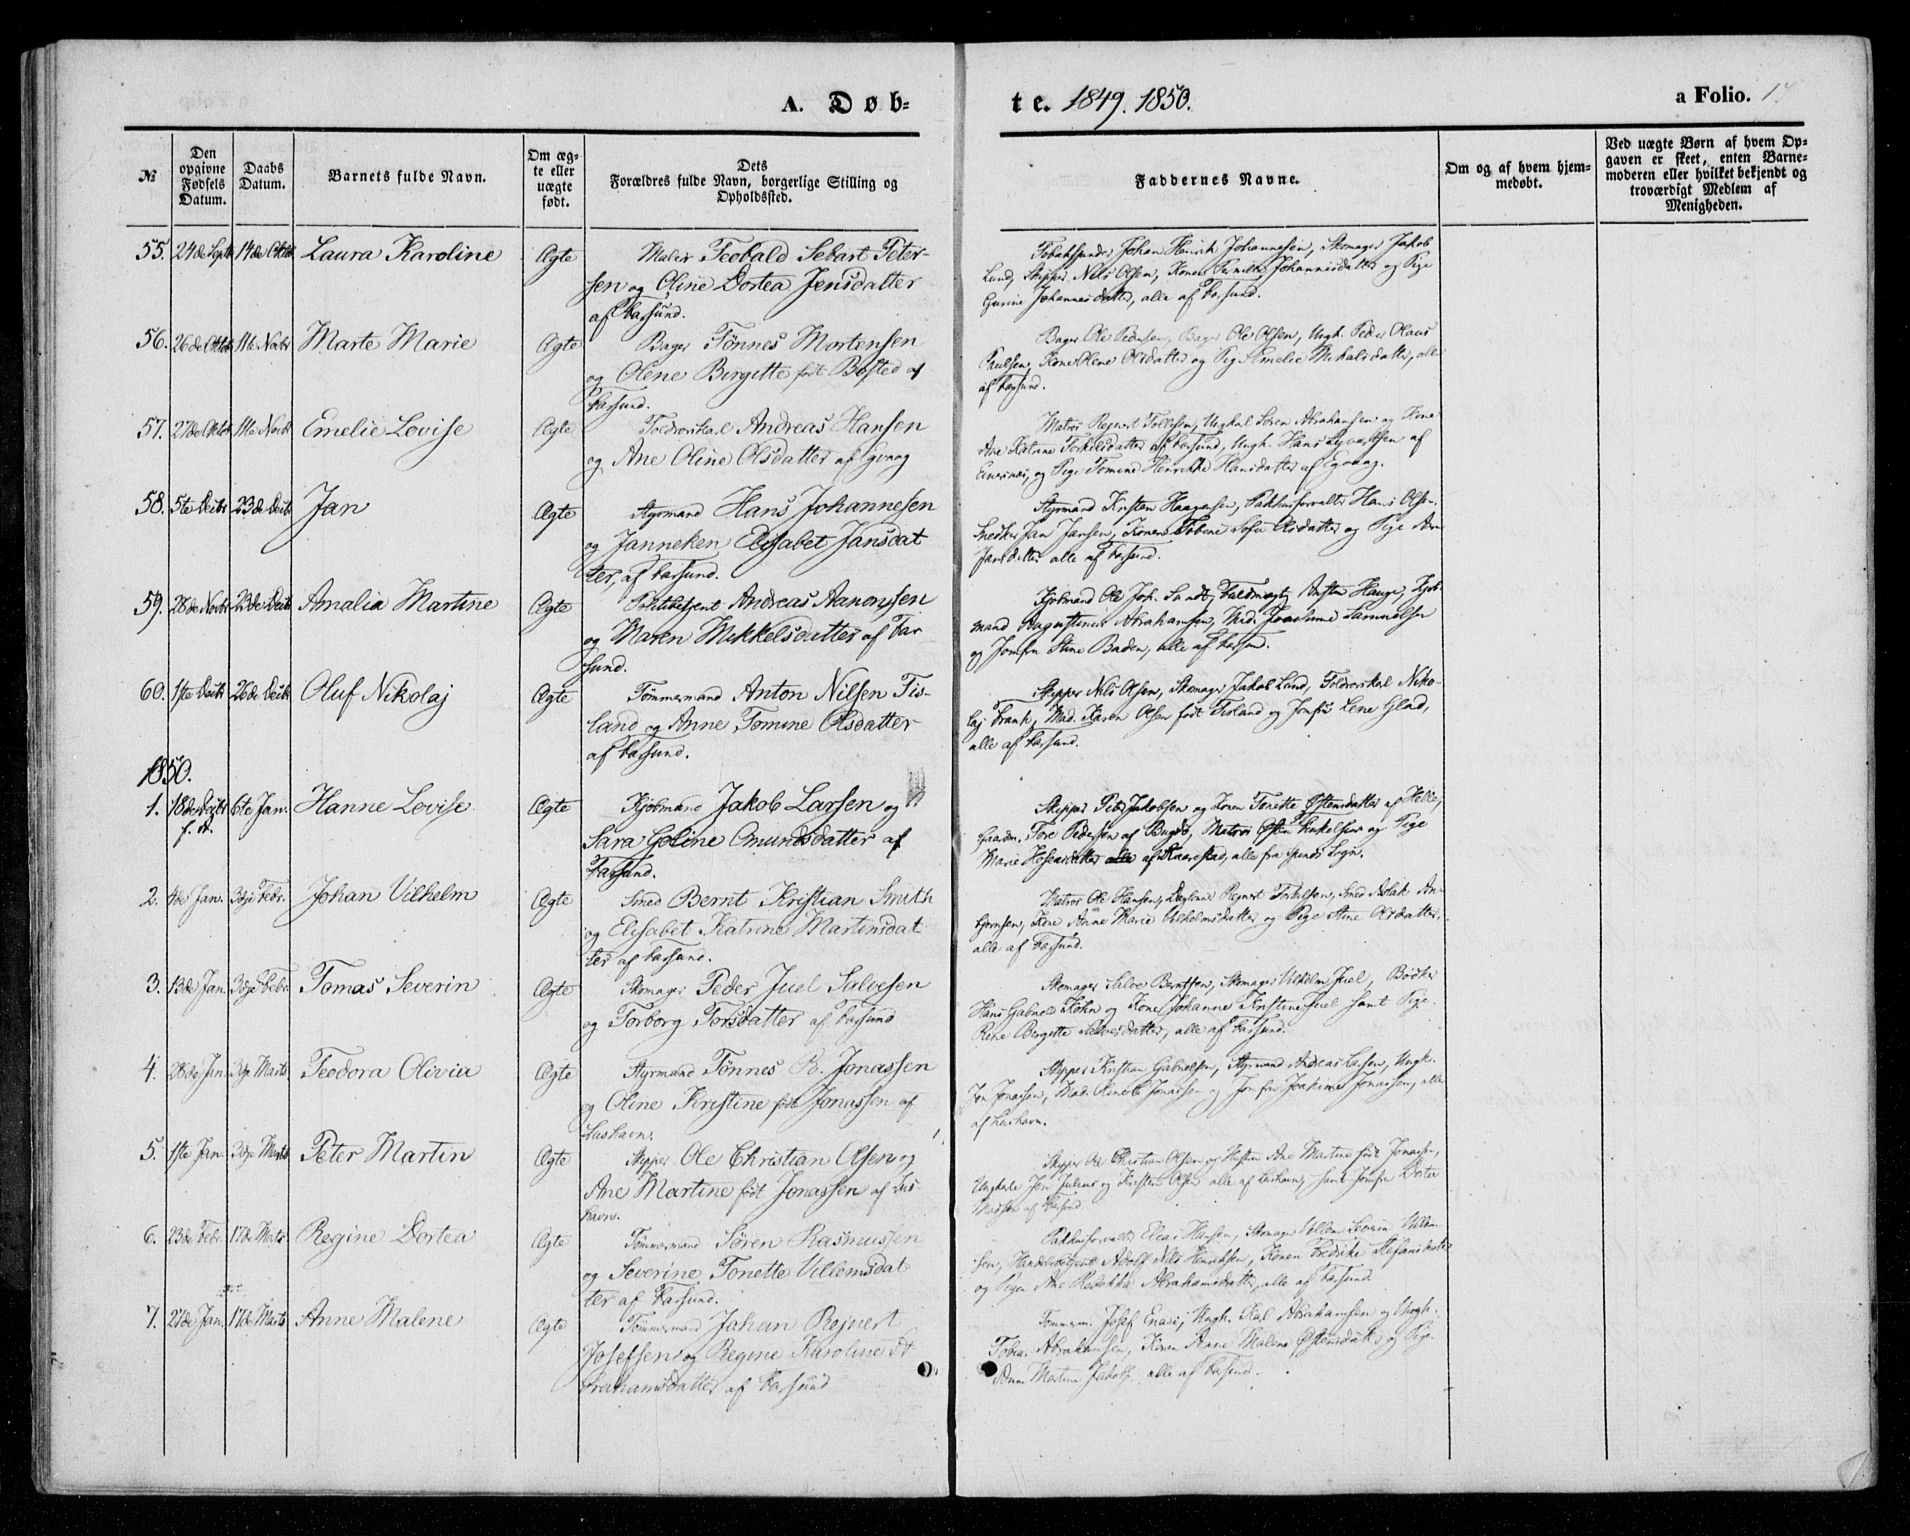 A. Døb-
te. 1849. 1850.
a Folio.
№
Den opgivne Fødsels Datum.
Daabs Datum.
Barnets fulde Navn.
Om ægte eller uægte født.
Dets Forældres fulde Navn, borgerlige Stilling og Opholdssted.
Faddernes Navne.
Om og af hvem hjemmedøbt.
Ved uægte Børn af hvem Opgaven er skeet, enten Barnemoderen eller hvilket bekjendt og troværdigt Medlem af Menigheden.
55. 24de Septb 14de Oktob Laura Karoline Ægte Maler Teobald Sebart Peter-
sen og Oline Dortea Jensdatter
af Farsund.
Johan Henrik Johannesen, Skomager Jakob
Lund, Skipper Nils Olsen, Konen Johannesdatter og Pige
Gurine Johannesdatter, alle af Farsund.
56. 26de Oktob 11te Novbr Marte Marie Ægte Bager Tønnes Mortensen
og Olene Birgitte født Bøsted af
Farsund.
Bager Ole Pedersen, Bager Ole Olsen, Ungk. Peder Olaus
Paulsen, Kone Olene Olsdatter og Pig Amelie Mikalsdatter, alle
af Farsund.
57. 27de Oktob 11te Novbr Emelie Lovise Ægte Toldroerskarl Andreas Hansen
og Ane Oline Olsdatter af Egvaag
Matros Regnert Tollefsen, Ungkal Søren Abrahamsen og Kone
Ane Katrine Torkelsdatter af Farsund, Ungk. Hans af
og Pige Tomine Henrikke Hansdatter af Egvaag.
58. 5te Decbr 23de Decb Jan Ægte Styrmand Hans Johannesen
og Janneken Elisabet Jansdat
ter, af Farsund.
Styrmand Kristen Haagensen, Pakhusforvalter Hans Olsen
Snedker Jan Jansen, Konen Tobine Sofie Olsdatter og Pige Ane
Jansdatter alle af Farsund.
59. 28de Novbr 23de Decb Amalia Martine Ægte Andreas Aanonsen
og Maren Mikkelsdatter af Far
sund.
Kjøbmand Ole Joh. Sundt, Hauge, Kjøb-
mand Augustinus Abrahamsen, Mad. Joachime Samuelsen
og Jomfru Stine Baden, alle af Farsund.
60. 1ste Decb 26de Decb Oluf Nikolaj Ægte Tømmermand Anton Nilsen Tis-
land og Anne Tomine Olsdatter
af Farsund.
Skipper Nils Olsen, Skomager Jakob Lund, Toldroerskal Niko-
laj Frank, Mad. Karen Olsen født Tisland og Jomfru Lene Glad,
alle af Farsund.
1850.
1. 18de Decbr f. A. 6te Jan. Hanne Lovise Ægte Kjøbmand Jakob Larsen og
Sara Goline Omundsdatter af
Farsund.
Skipper Peter Jakobsen og Konen Tonette Østensdatter af Helle,
Gaardm. Tore Pedersen af Bugdø, Matros Østen Torkelsen og Pige
Marie Hosearsdatter alle af Kaarestad, alle fra Spinds Sogn.
2. 4de Jan. 3dje Febr. Johan Vilhelm Ægte Smed Bernt Kristian Smith
og Elisabet Katrine Martinsdat
ter af Farsund.
Matros Ole Hansen, Regnert Torkilsen, Smed Aslak An-
bjørnsen, Kone Anne Marie Vilhelmsdatter og Pige Stine Olsdatter,
alle af Farsund.
3. 13de Jan. 3dje Febr. Tomas Severin Ægte Skomager Peder Juel Salvesen
og Torborg Torsdatter af Farsund
Skomager Salve Berntsen, Skomager Vilhelm Juel, Bødker
Hans Gabriel Kohn og Kone Johanne Kristine Juel samt Pige
Rine Birgitte Salvesdatter, alle af Farsund.
4. 28de Jan. 3dje Marts. Teodora Olivia Ægte Styrmand Tønnes B. Jonassen
og Oline Kristine født Jonassen af
Lushavn.
Skipper Kristian Gabrielsen, Styrmand Andreas Larsen, Ungk.
Jon Jonassen, Mad. Jonassen og Jomfru Joakime Jonassen, alle
af Lushavn.
5. 1ste Jan. 3dje Marts Peter Martin Ægte Skipper Ole Christian Olsen og
Ane Martine født Jonassen af Lus-
havn.
Skipper Ole Christian Olsen og Hustru Ane Martine født Jonassen,
Ungkarle Jon Julius og Kristen Olsen alle af Lushavn, samt Jomfru Dortea
Madsen af Farsund
6. 23de Febr. 17de Marts Regine Dortea Ægte Tømmermand Søren Rasmussen
og Severine Tonette Villemsdat
ter af Farsund.
Pakhusforvalter Elias Hansen, Skomager Villem Severin Villem
sen, Handelsbetjent Adolf Nils Henriksen, Konen Fredrike Stefansdatter
og Pigen Ane Rebekka Abrahamsdatter, alle af Farsund.
7. 27de Jan. 17de Marts. Anne Malene Ægte Tømmermand Johan Regnert
Josefsen og Regine Karoline A
brahamsdatter af Farsund
Tømmerm. Josef Enasi, Ungk. Karl Abrahamsen og Ungk.
Tobias Abrahamsen, Konen Anne Malene Østensdatter og Pige
Anne Martine Jakobs. alle af Farsund.